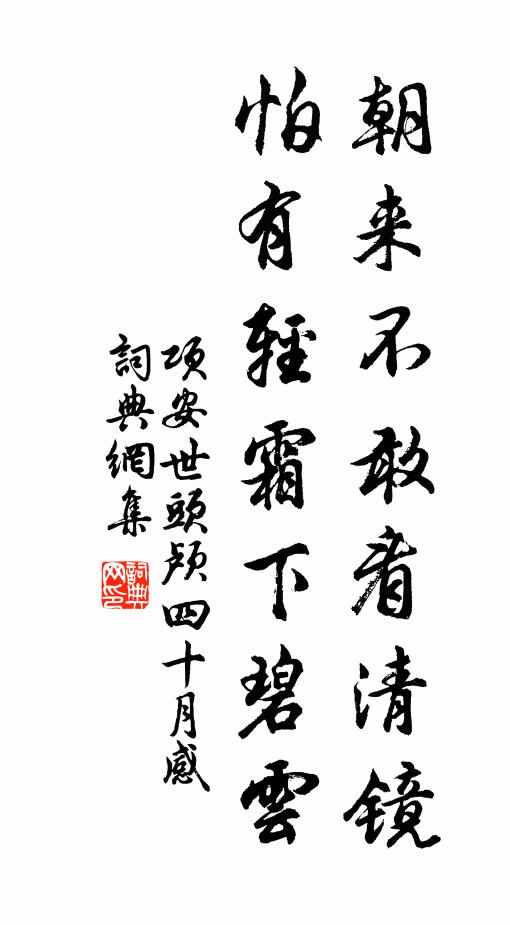 朝来不敢看清镜
怕有輕霜下碧雲
项安世頭颅四十月感
詞典網集
詞典网印